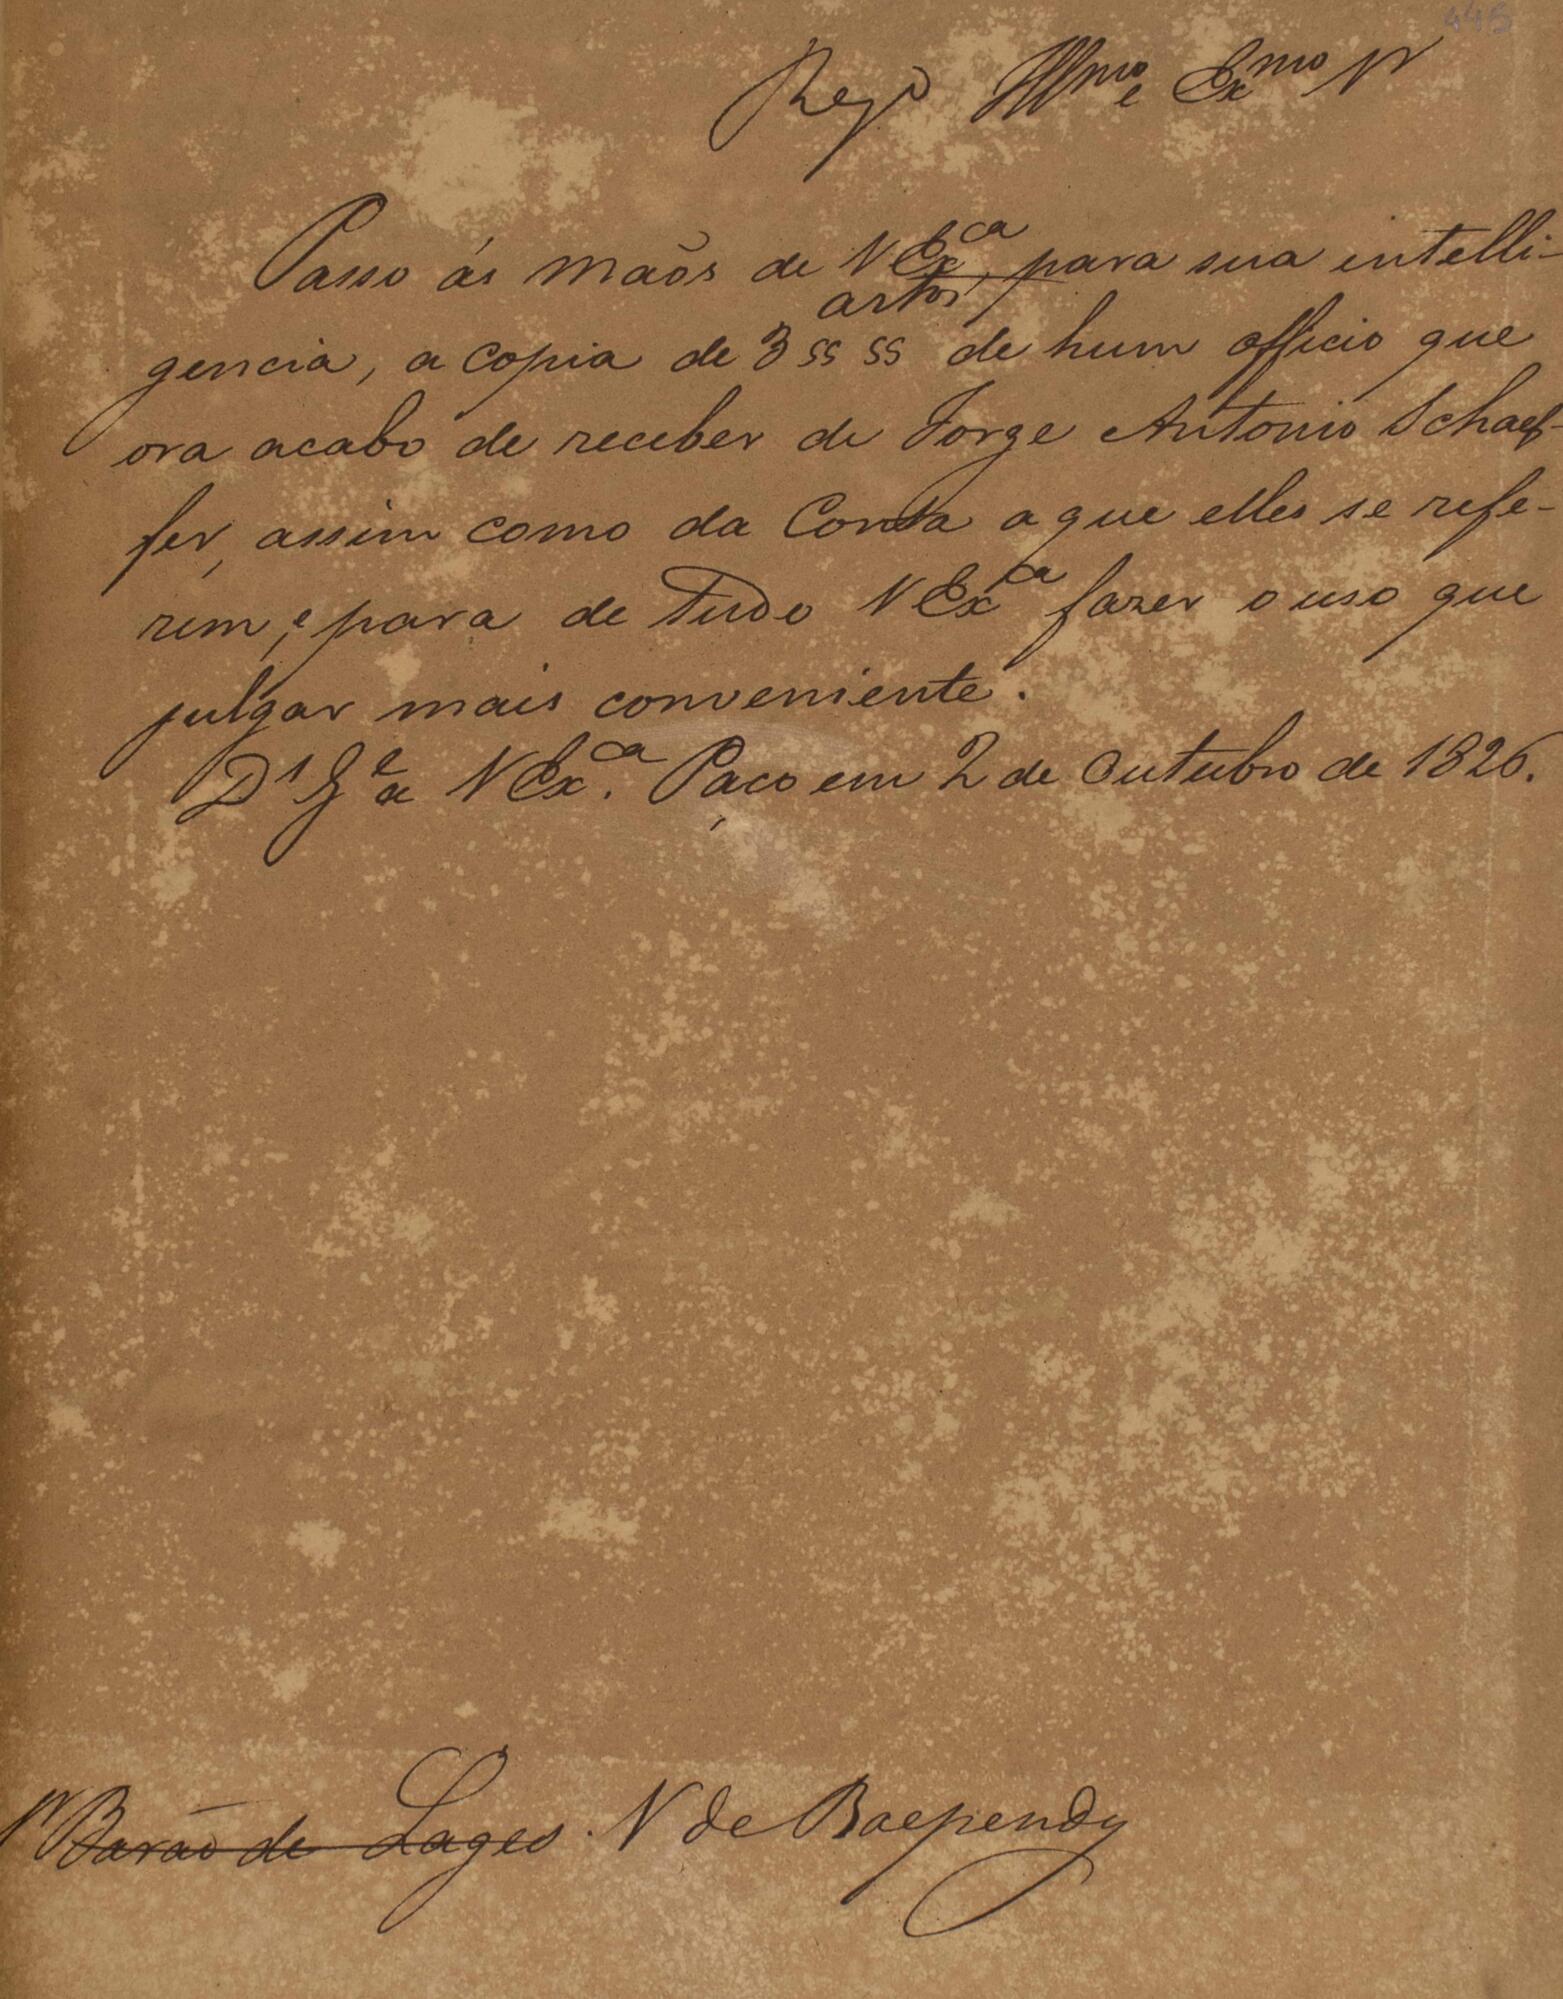 445
Reg.º Illmo e Exmo Sr
Passo ás maõs de V Exca, para sua intelli-
artos
gencia, a copia de 3 §§ §§ de hum officio que
ora acabo de receber de Jorge Antonio Schaef-
fer, assim como da Conta a que elles se refe-
rem, e para de tudo V Exca fazer o uso que
julgar mais conveniente.
Ds Ge a V Exca. Paço em 2 de Outubro de 1826.
Sr Barão de Lages. V de Baependy